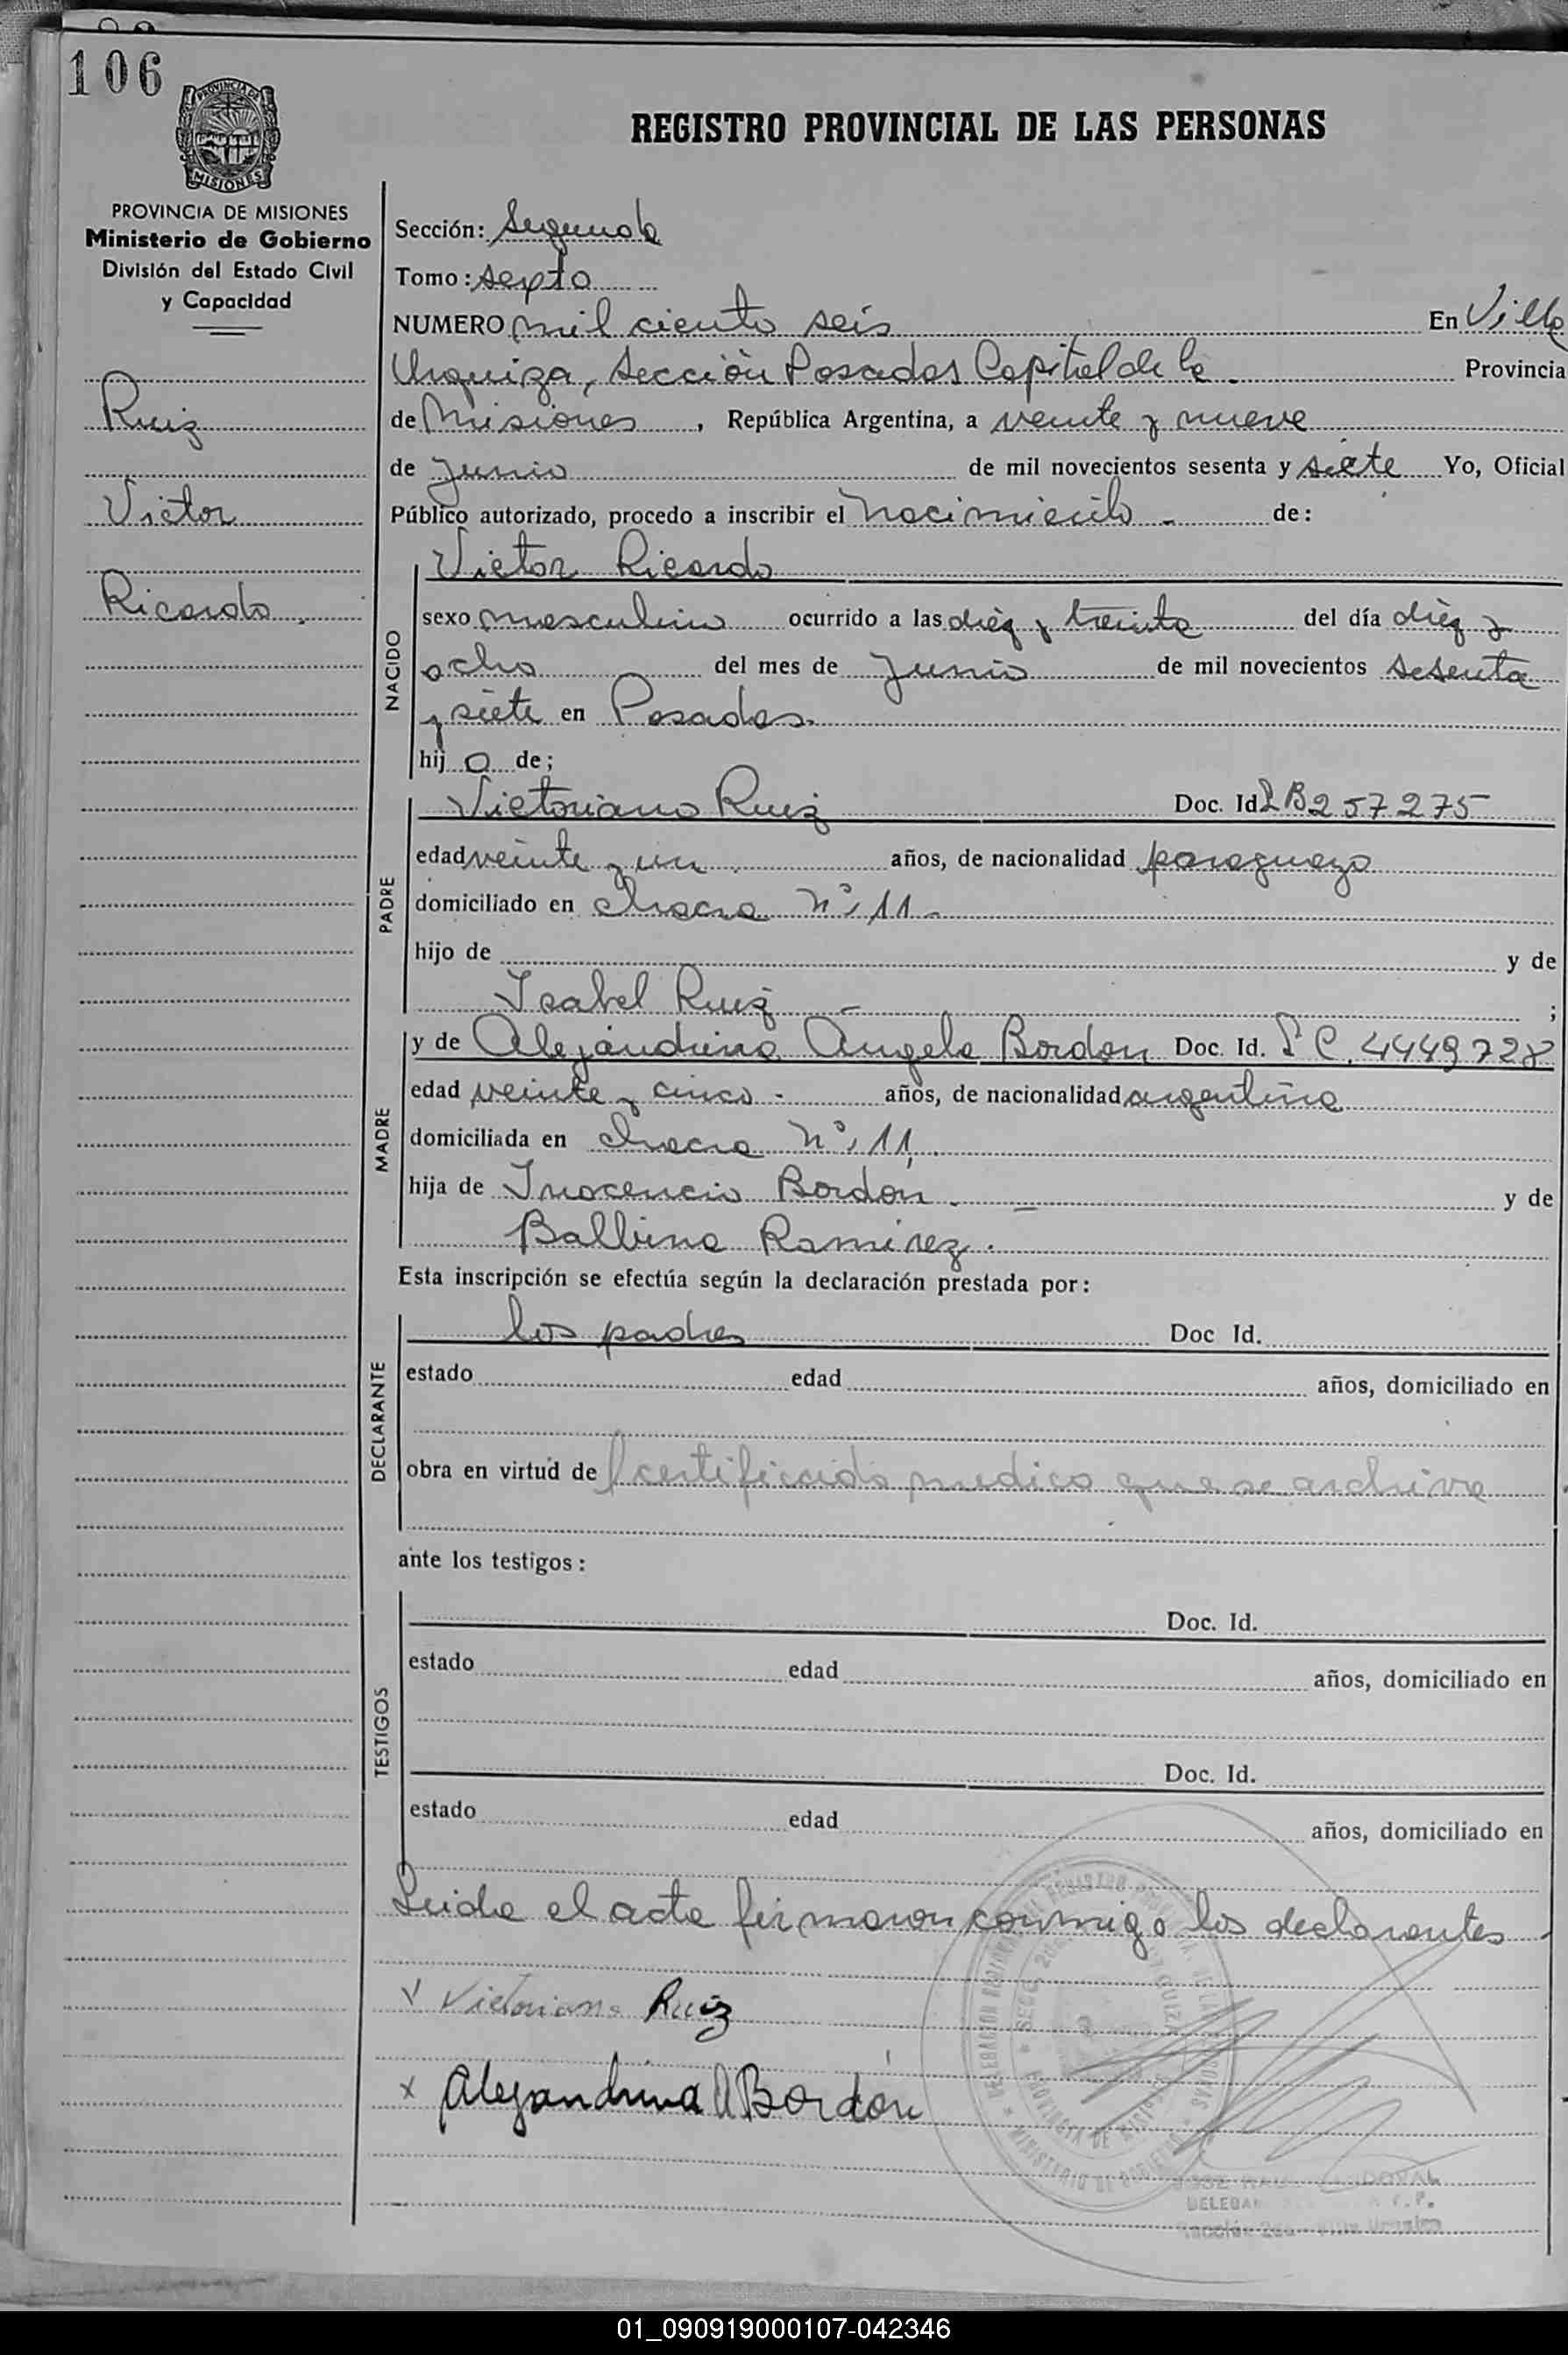 106
PROVINCIA DE
MISIONES
PROVINCIA DE MISIONES
Ministerio de Gobierno
División del Estado Civil
y Capacidad
Ruiz
Victor
Ricardo.
REGISTRO PROVINCIAL DE LAS PERSONAS
Sección: Segunda
Tomo: sexto
NUMERO mil ciento seis En Villa
Urquiza, Sección Posadas Capital de la Provincia
de Misiones, República Argentina, a veinte y nueve
de Junio de mil novecientos sesenta y siete Yo, Oficial
Público autorizado, procedo a inscribir el Nacimiento - de:
Victor Ricardo
NACIDO
sexo masculino ocurrido a las diéz y treinta del día diéz y
ocho del mes de Junio de mil novecientos sesenta
y siete en Posadas.
hij o de;
PADRE
Victoriano Ruiz Doc. Id LB257275
edad veinte y un años, de nacionalidad paraguaya
domiciliado en Chacra Nº 11 -
hijo de y de
Isabel Ruiz ;
MADRE
y de Alejandrina Angela Bordon Doc. Id. L C. 4449728
edad veinte y cinco - años, de nacionalidad argentina
domiciliada en Chacra Nº 11
hija de Inocencio Bordón. - y de
Balbina Ramirez.
Esta inscripción se efectúa según la declaración prestada por:
DECLARANTE
los padres Doc Id.
estado edad años, domiciliado en
obra en virtud de l certificado medico que se archiva
ante los testigos:
TESTIGOS
Doc. Id.
estado edad años, domiciliado en
Doc. Id.
estado edad años, domiciliado en
Leida el acta firmaron conmigo los declarantes
Victoriano Ruiz
x Alejandrina A Bordón
PROVINCIA DE
MINISTERIO DE GOBIERNO
JOSE
01_090919000107-042346